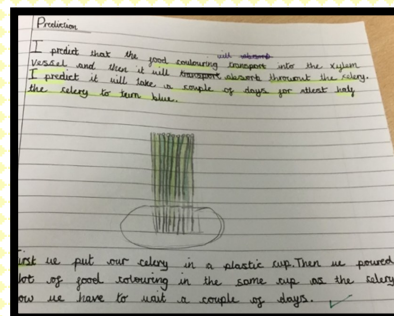 Prediction
I predict that the food colouring will absorb transport into the xylem
vessel and then it will transport absorb throuout the celery.
I predict it will take a couple of days for atlest half
the celery to turn blue.
irst we put our celery in a plastic cup. Then we poured
lot of food colouring in the same cup as the celery
ow we have to wait a couple of days.